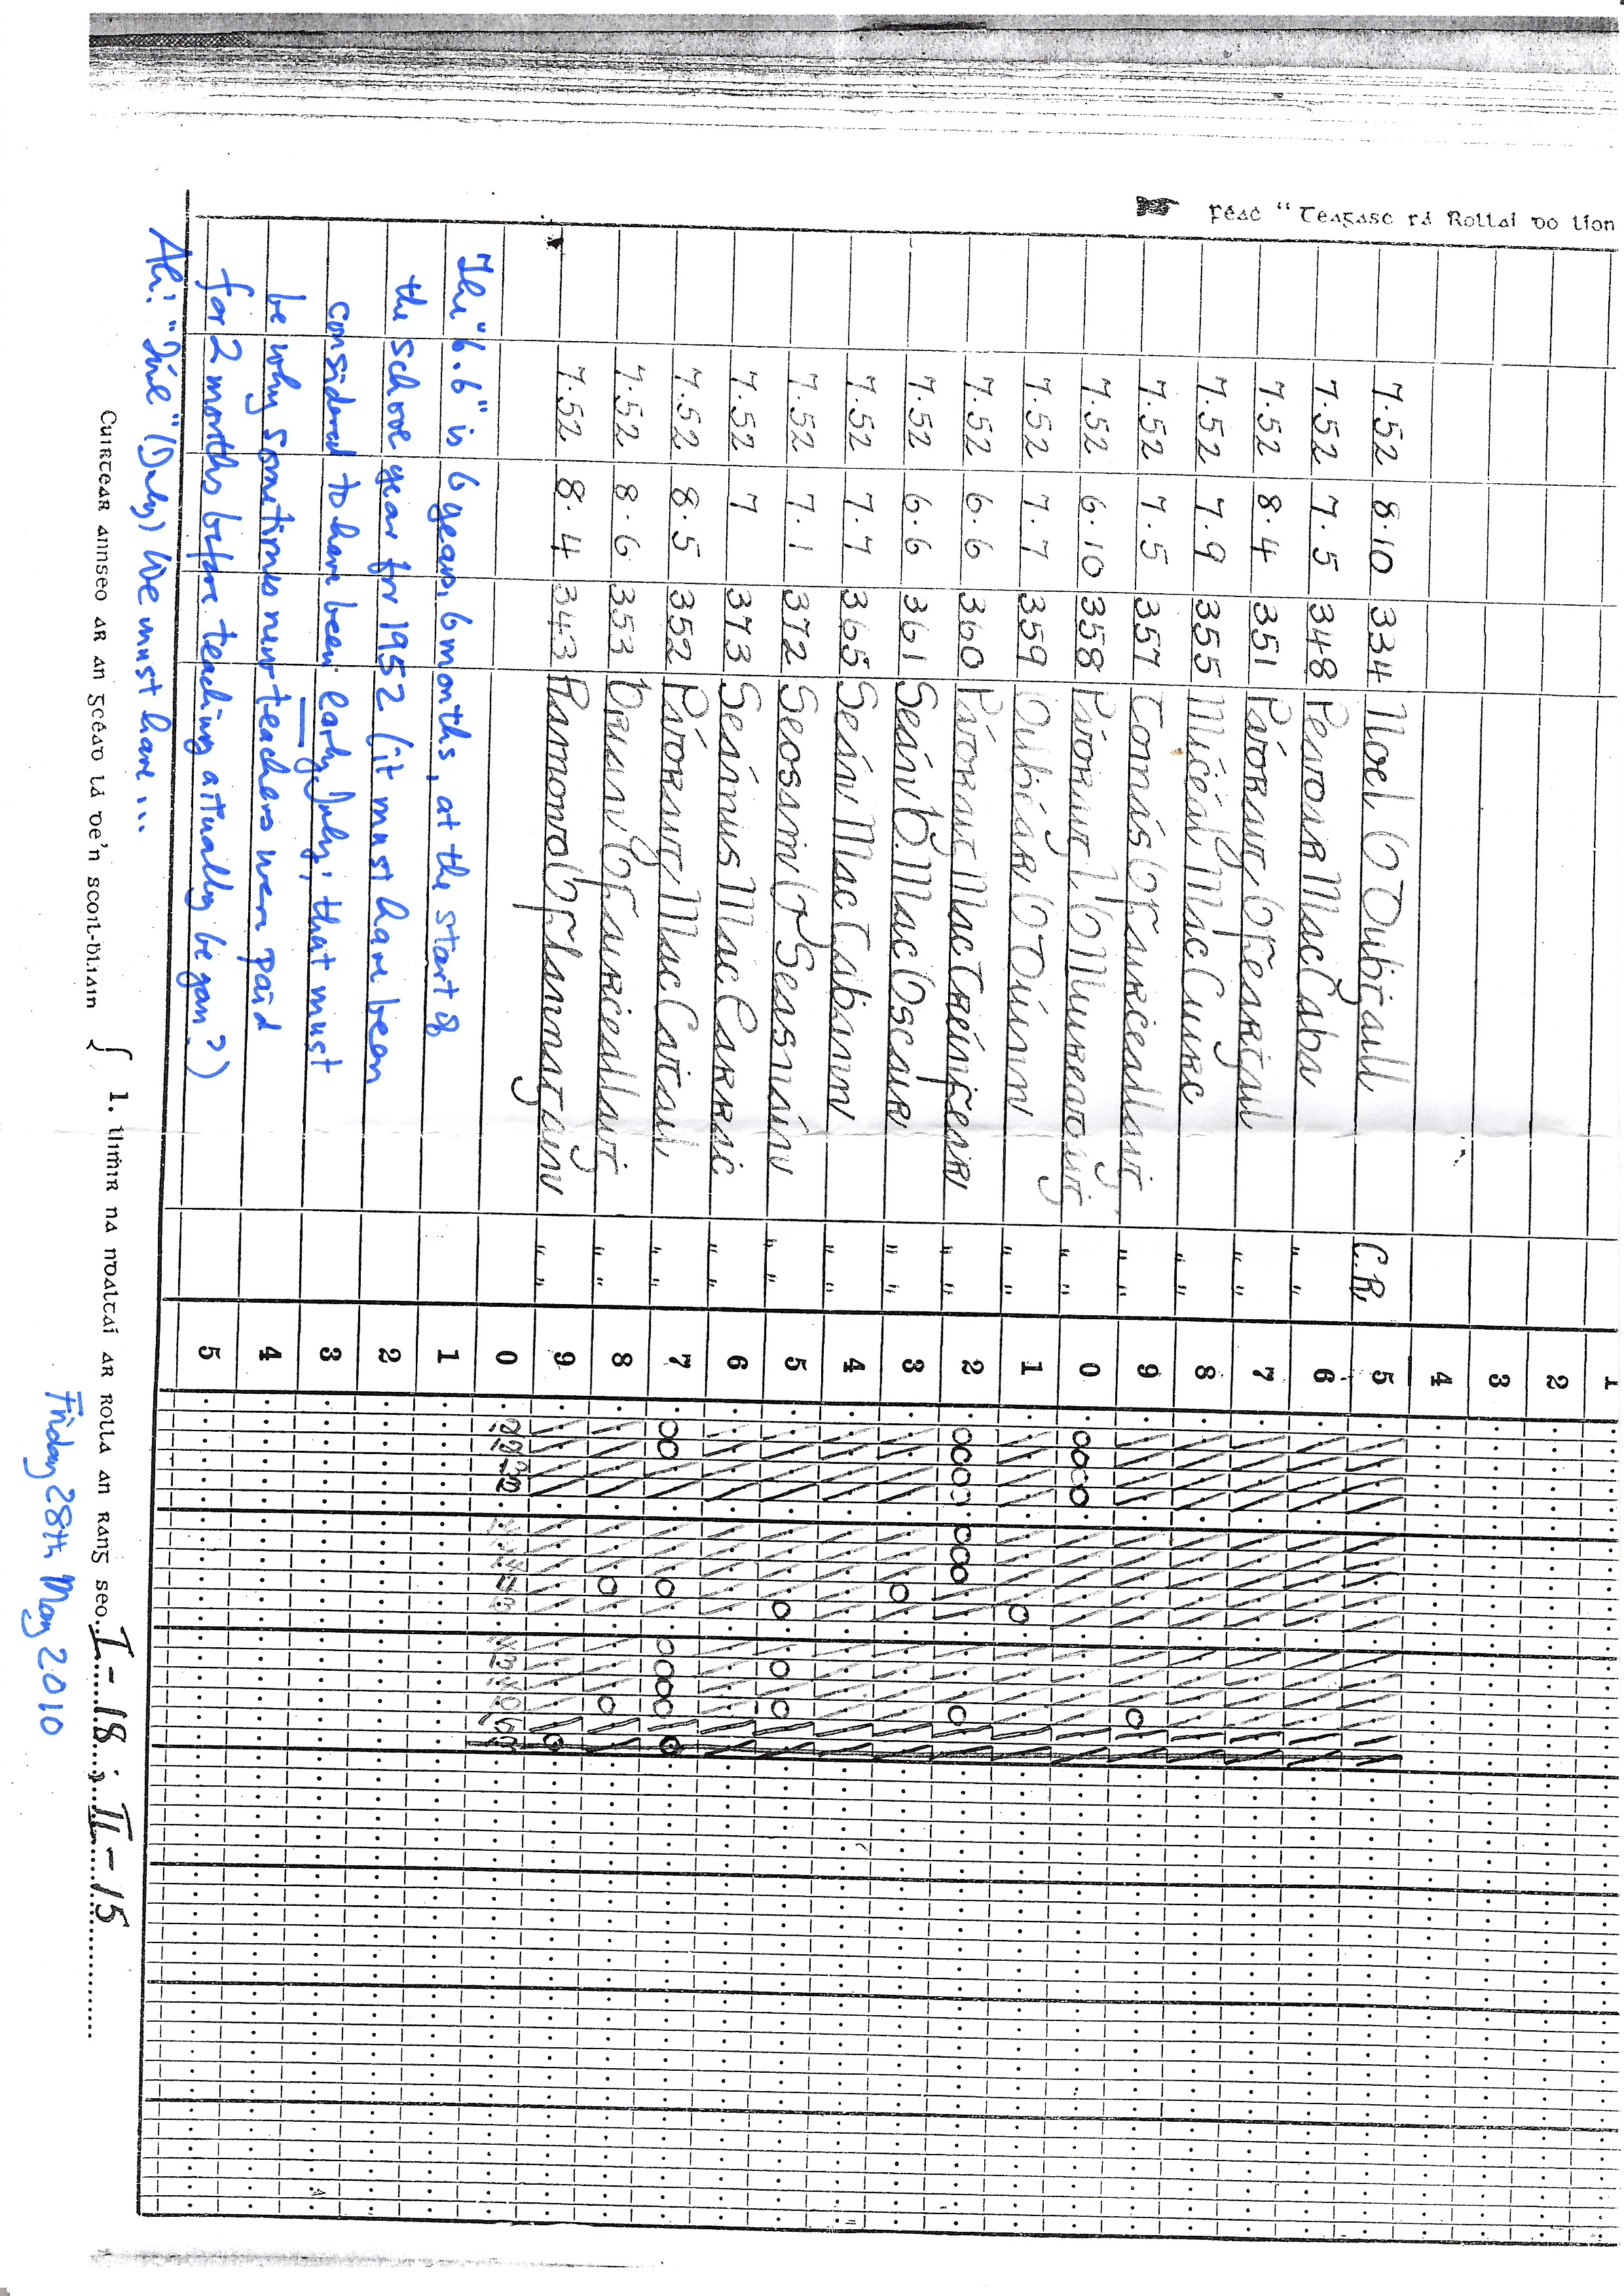 féac "Teagasc rá Rollaí do líon
1
2
3
4
7.52 8.10 334 Noel Ó Dubġaill C.R. 5
7.52 7.5 348 Peadar Mac Caba " " 6
7.52 8.4 351 Pádraig Ó Fearġail " " 7
7.52 7.9 355 Mícéal Mac Cuirc " " 8
7.52 7.5 357 Tomás Ó Fairċeallaiġ " " 9
7.52 6.10 358 Pádraig L Ó Muireadaiġ " " 0
7.52 7.7 359 Oilbéar Ó Duinn " " 1
7.52 6.6 360 Pádraig Mac Tréinfear " " 2
7.52 6.6 361 Seán B. Mac Oscair " " 3
7.52 7.7 365 Seán Mac Gabann " " 4
7.52 7.1 372 Seosaṁ Ó Seasnáin " " 5
7.52 7 373 Séamus Mac Carraic " " 6
7.52 8.5 352 Pádraig Mac Catail " " 7
7.52 8.6 353 Brian Ó Fairċeallaiġ " " 8
7.52 8.4 343 Ramond Ó Flannagáin " " 9
0 12 12 13 13 14 14 14 11 13 14 13 14 10 15 13
The "6.6" is 6 years, 6 months, at the start of 1
the school year for 1952 (it must have been 2
considered to have been early July; that must 3
be why sometimes new teachers were paid 4
for 2 months before teaching actually began?) 5
Ah! "Iúil" (July) We must have ...
Cuirtear annseo ar an gcéad lá de'n scoil-bliain { 1. Uiṁir na ndaltaí ar rolla an rang seo. I - 18 ; II - 15
Friday 28th May 2010